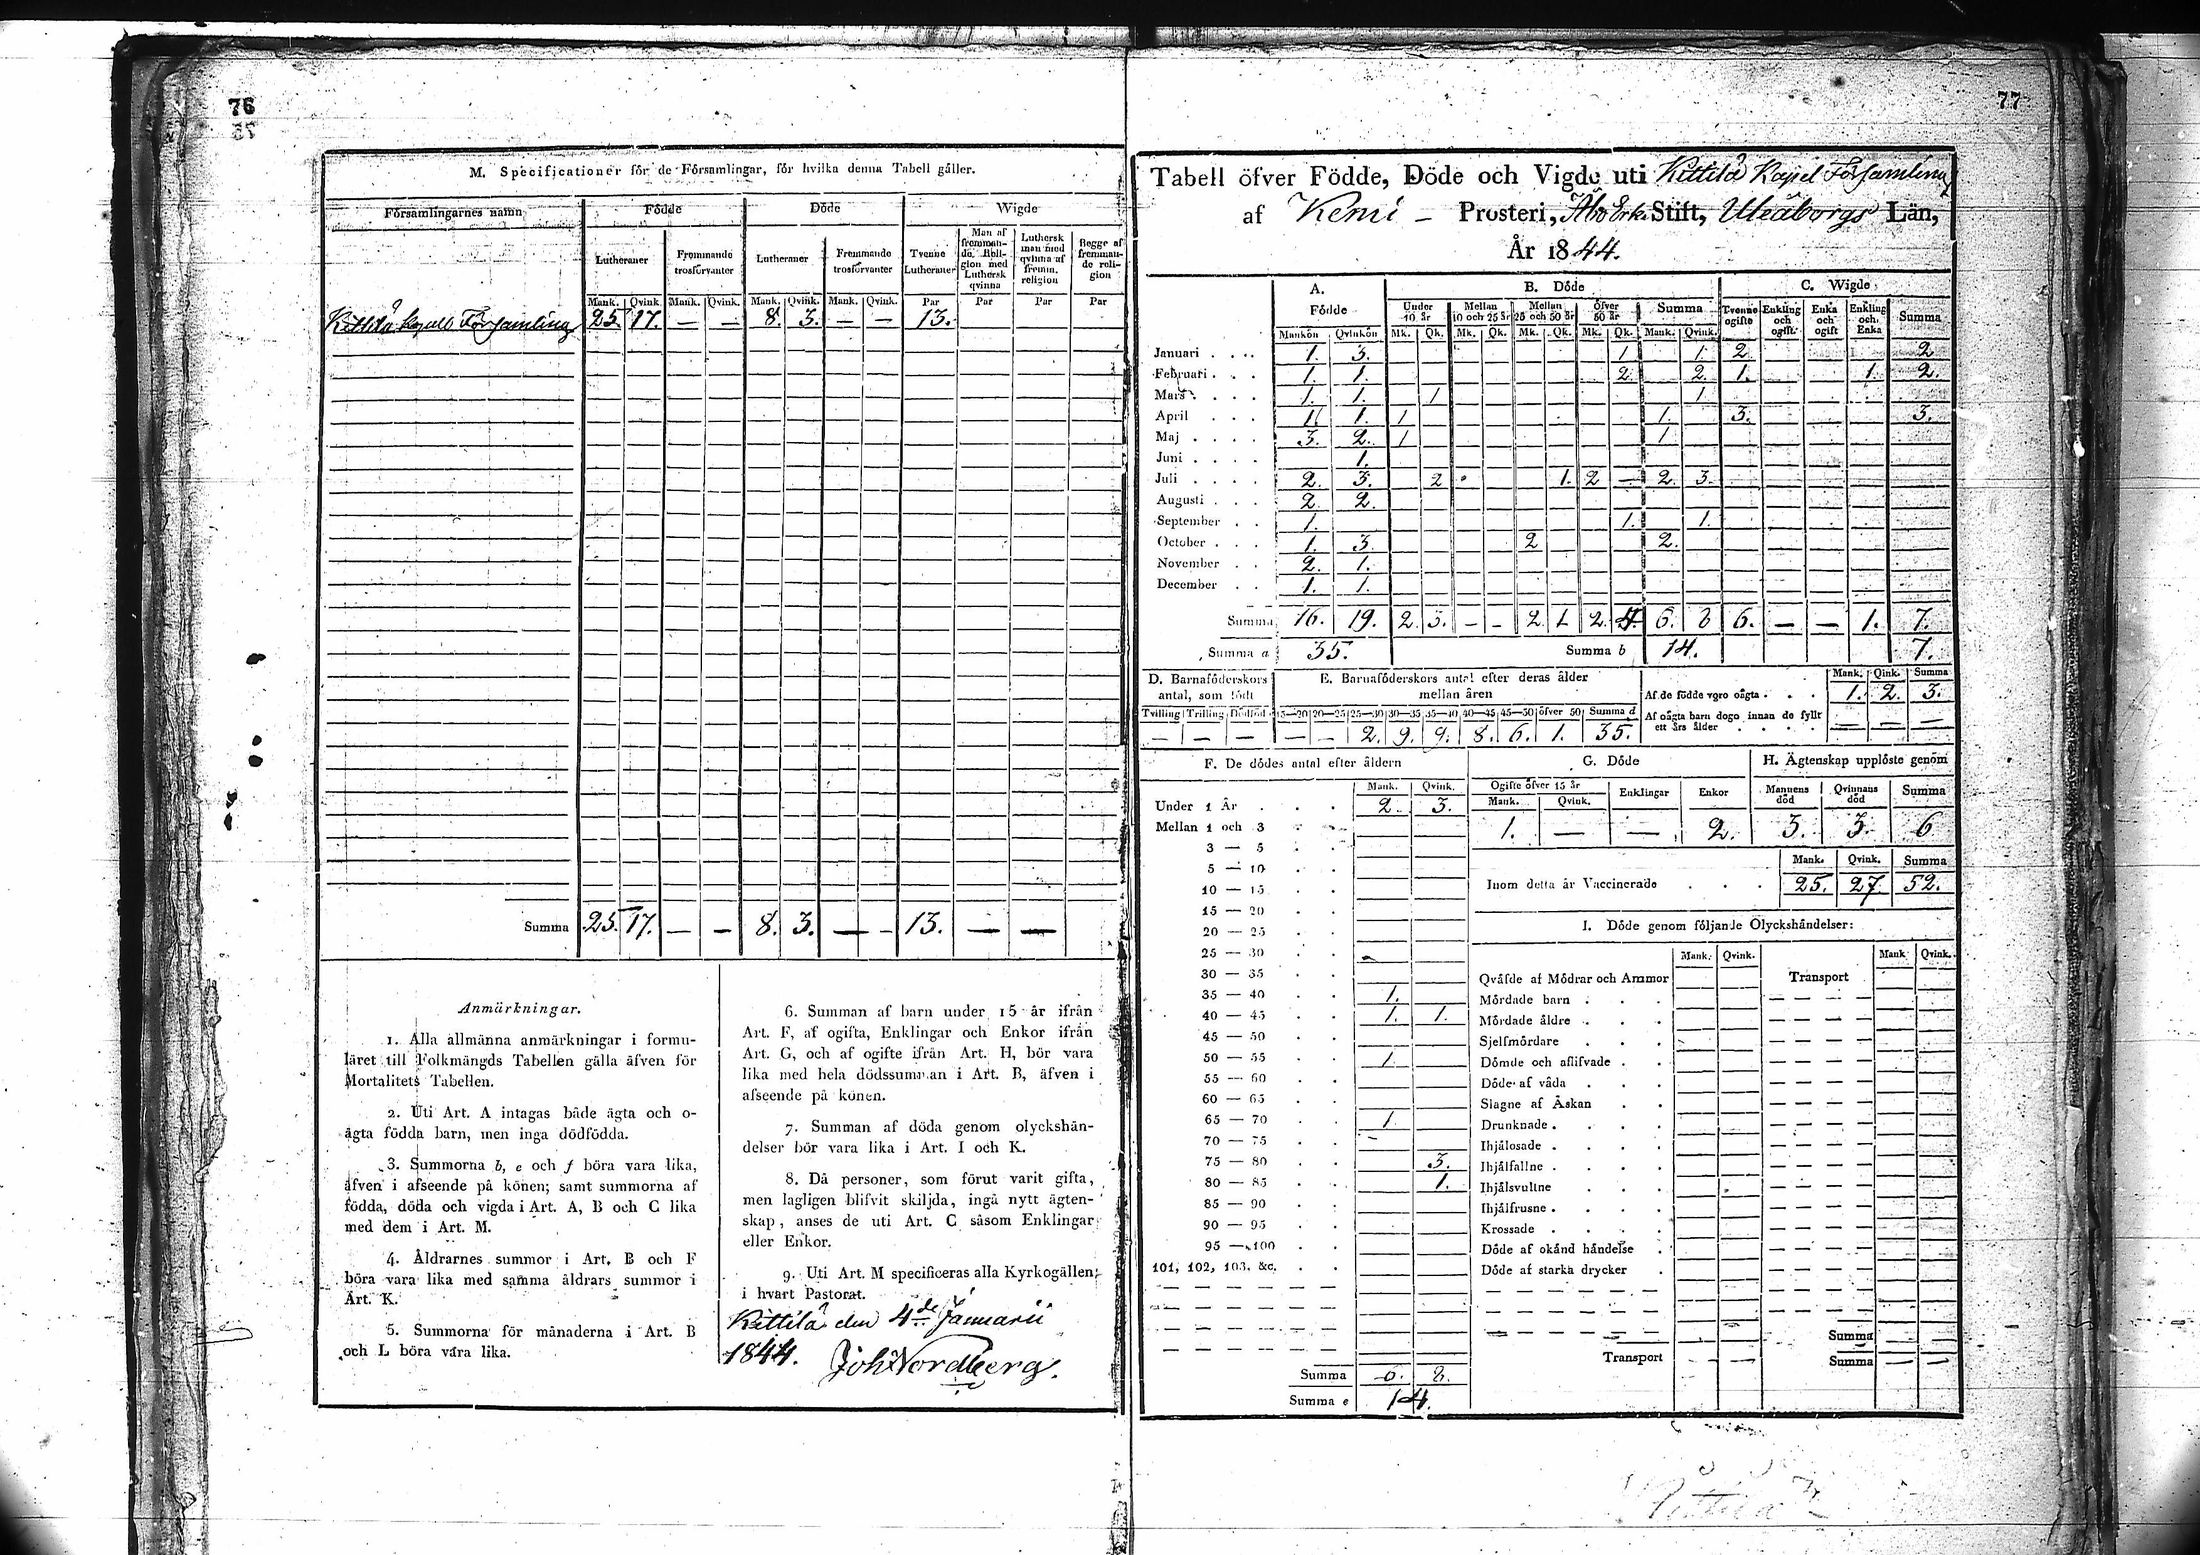 76
M. Specificationer för de Församlingar, för hvilka denna Tabell gäller.
Församlingarnes namn Födde Döde Wigde
Lutheraner Fremmande trosförvanter Lutheraner Fremmande trosförvanter Tvenne Lutheraner Man af fremmande Religion med Luthersk qvinna Luthersk man med qvinna af fremm. religion Begge af fremmande religion
Mank. Qvink. Mank. Qvink. Mank. Qvink. Mank. Qvink. Par Par Par Par
Kittilä kapell Församling 25. 17. — — 8. 3. — — 13.
Summa 25. 17. — — 8. 3. — — 13. — —
Anmärkningar.
1. Alla allmänna anmärkningar i formu-
läret till Folkmängds Tabellen gälla äfven för
Mortalitets Tabellen.
2. Uti Art. A intagas både ägta och o-
ägta födda barn, men inga dödfödda.
3. Summorna b, e och f böra vara lika,
äfven i afseende på könen; samt summorna af
födda, döda och vigda i Art. A, B och C lika
med dem i Art. M.
4. Åldrarnes summor i Art. B och F
böra vara lika med samma åldrars summor i
Art. K.
5. Summorna för månaderna i Art. B
och L böra vara lika.
6. Summan af barn under 15 år ifrån
Art. F, af ogifta, Enklingar och Enkor ifrån
Art. G, och af ogifte ifrån Art. H, bör vara
lika med hela dödssumman i Art. B, äfven i
afseende på könen.
7. Summan af döda genom olyckshän-
delser bör vara lika i Art. I och K.
8. Då personer, som förut varit gifta,
men lagligen blifvit skiljda, ingå nytt ägten-
skap, anses de uti Art. C såsom Enklingar
eller Enkor.
9. Uti Art. M specificeras alla Kyrkogällen
i hvart Pastorat.
Kittilä den 4de Januarii
1844. Joh Nordberg.
77
Tabell öfver Födde, Döde och Vigde uti Kittilä Kapel Församling
af Kemi – Prosteri, Åbo Erke Stift, Uleåborgs Län,
År 1844.
A. Födde B. Döde C. Wigde
Under 10 år Mellan 10 och 25 år Mellan 25 och 50 år Öfver 50 år Summa Tvenne ogifte Enkling och ogift Enka och ogift Enkling och Enka Summa
Mankön Qvinkön Mk. Qk. Mk. Qk. Mk. Qk. Mk. Qk. Mank. Qvink.
Januari 1. 3. 1 1. 2 2
Februari 1. 1. 2. 2. 1. 1. 2.
Mars 1. 1. 1 1
April 1. 1. 1 1. 3. 3.
Maj 3. 2. 1 1
Juni 1.
Juli 2. 3. 2 1. 2 — 2. 3.
Augusti 2. 2.
September 1. 1. 1.
October 1. 3. 2 2.
November 2. 1.
December 1. 1.
Summa 16. 19. 2. 3. – – 2. 1. 2. 4. 6. 8 6. — — 1. 7.
Summa a 35. Summa b 14. 7.
D. Barnaföderskors antal, som födt
Tvilling Trilling Dödföd
— — —
E. Barnaföderskors antal efter deras ålder mellan åren
15—20 20—25 25—30 30—35 35—40 40—45 45—50 öfver 50 Summa d
— — 2. 9. 9. 8. 6. 1. 35.
Mank. Qink. Summa
Af de födde voro oägta 1. 2. 3.
Af oägta barn dogo innan de fyllt ett års ålder — — —
F. De dödes antal efter åldern
Mank. Qvink.
Under 1 År 2. 3.
Mellan 1 och 3
3 — 5
5 — 10
10 — 15
15 — 20
20 — 25
25 — 30
30 — 35
35 — 40 1.
40 — 45 1. 1.
45 — 50
50 — 55 1.
55 — 60
60 — 65
65 — 70 1.
70 — 75
75 — 80 3.
80 — 85 1.
85 — 90
90 — 95
95 — 100
101, 102, 103, &c.
Summa 6. 8.
Summa e 14.
G. Döde
Ogifte öfver 15 år Enklingar Enkor
Mank. Qvink.
1. — — 2.
H. Ägtenskap upplöste genom
Mannens död Qvinnans död Summa
3. 3. 6
Mank. Qvink. Summa
Inom detta år Vaccinerade 25. 27. 52.
I. Döde genom följande Olyckshändelser:
Mank. Qvink. Mank. Qvink.
Qväfde af Mödrar och Ammor Transport
Mördade barn
Mördade äldre
Sjelfmördare
Dömde och aflifvade
Döde af våda
Slagne af Åskan
Drunknade
Ihjälosade
Ihjälfallne
Ihjälsvultne
Ihjälfrusne
Krossade
Döde af okänd händelse
Döde af starka drycker
Summa
Transport — — Summa — —
Kittilä